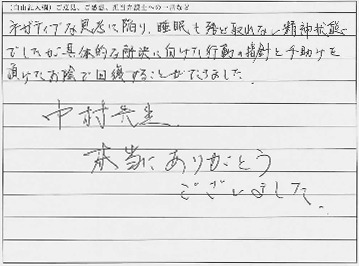 (自由記入欄)ご意見、ご感想、担当弁護士への一言など
ネガティブな思考に陥り、睡眠も殆ど取れない精神状態
でしたが具体的な解決に向けた行動の指針と手助けを
頂けたお陰で回復することができました。
中村先生
本当にありがとう
ございました。